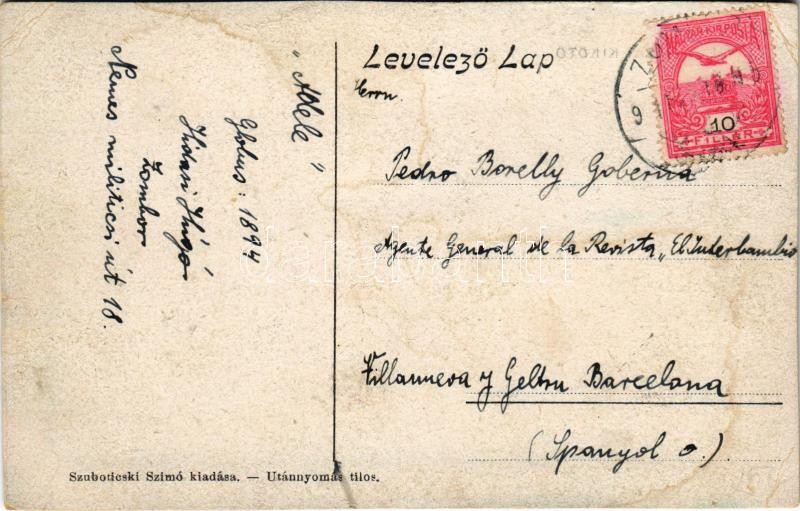 "Adele"
Globus: 1894
Hidasi Hugó
Zombor
Nemes militicsi út 18.
Szuboticski Szimó kiadása. — Utánnyomás tilos.
Levelező Lap
Herrn
Pedro Borelly Goberna
Agente General de la Revista „El Interbambio
Villanueva y Geltru Barcelona
(Spanyol o.)
MAGYAR KIR. POSTA
10
FILLÉR
darabanth